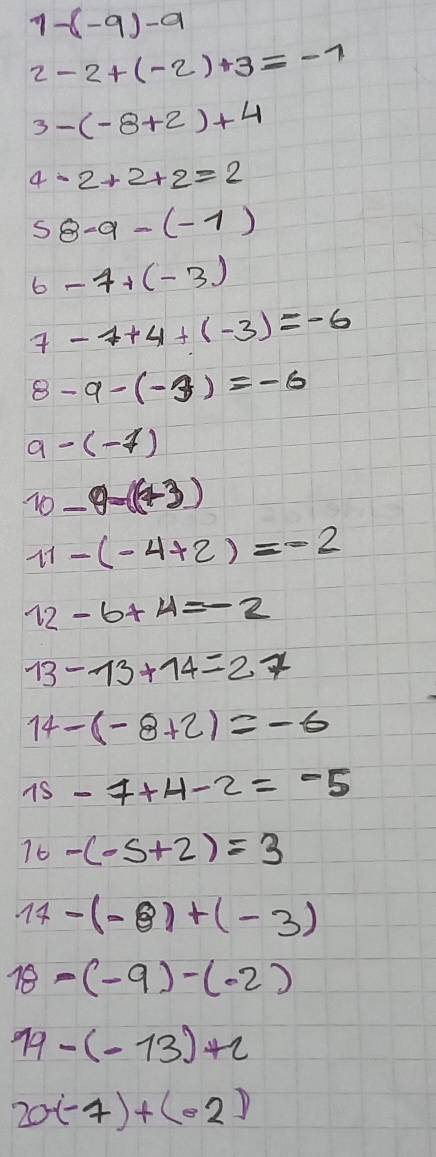 1-(-9)-9
2 -2+(-2)+3=-1
3 -(-8+2)+4
4 -2+2+2=2
5 8-9-(-1)
6 -7+(-3)
7 -7+4+(-3)=-6
8 -9-(-3)=-6
9 -(-7)
10 -9-(+3)
11 -(-4+2)=-2
12 -6+4=-2
13 -13+14=27
14 -(-8+2)=-6
15 -7+4-2=-5
16 -(-5+2)=3
17 -(-8)+(-3)
18 -(-9)-(-2)
19 -(-13)+2
20 (-7)+(-2)